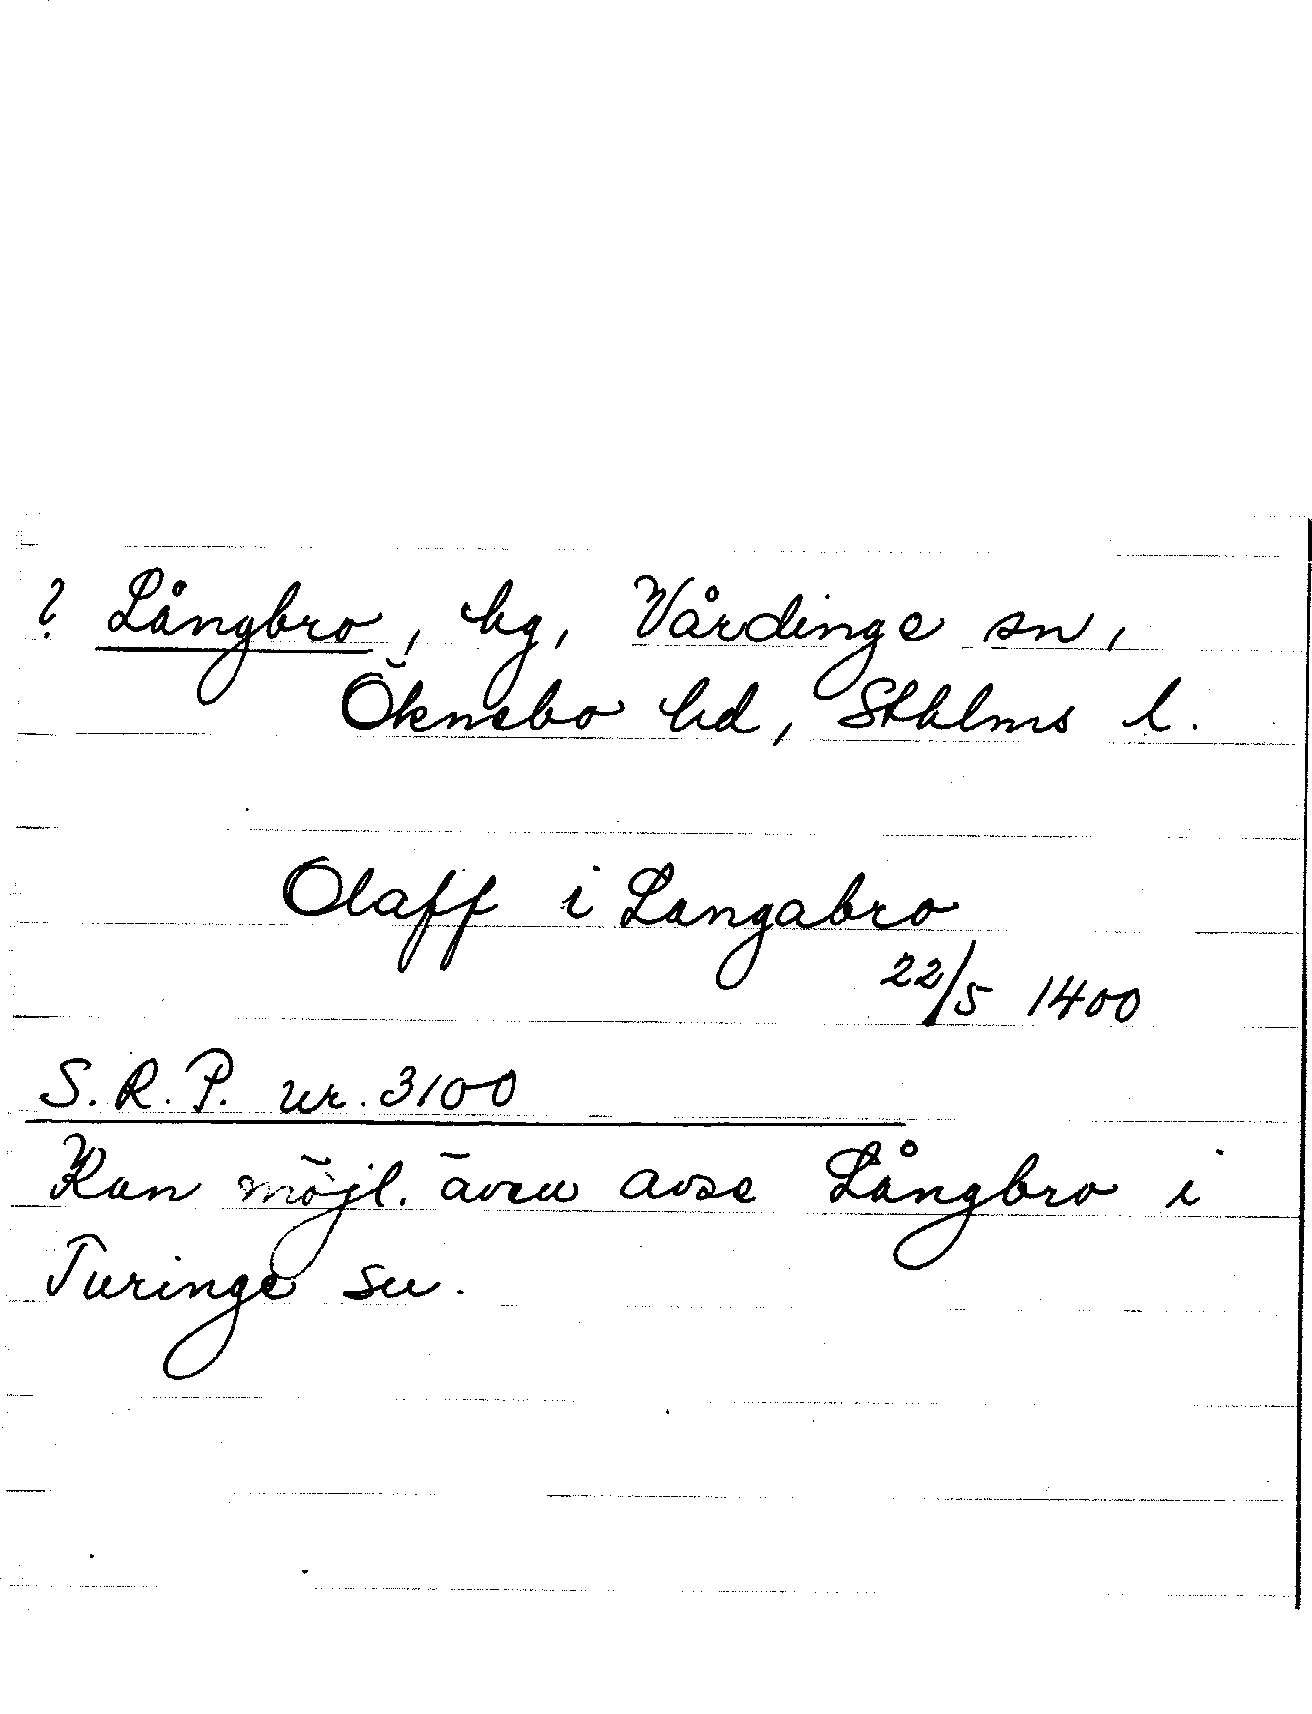 ? Långbro, hg, Vårdinge sn,
Öknebo hd, Sthlms l.
Olaff i Langabro
22/5 1400
S.R.P. nr. 3100
Kan möjl. även avse Långbro i
Turinge sn.